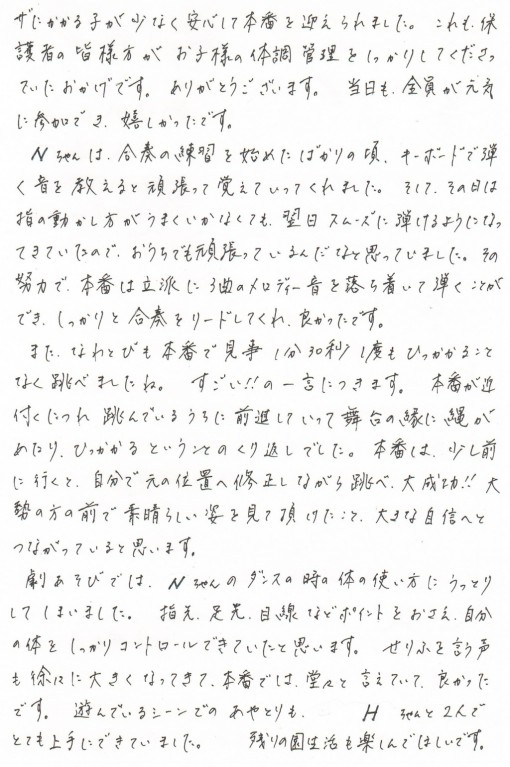 ザにかかる子が少なく安心して本番を迎えられました。これも、保
護者の皆様方がお子様の体調管理をしっかりしてくださっ
ていたおかげです。ありがとうございます。当日も、全員が元気
に参加でき、嬉しかったです。
Nちゃんは、合奏の練習を始めたばかりの頃、キーボードで弾
く音を教えると頑張って覚えていってくれました。そして、その日は
指の動かし方がうまくいかなくても、翌日スムーズに弾けるようになっ
てきていたので、おうちでも頑張っているんだなと思っていました。その
努力で、本番は立派に3曲のメロディー音を落ち着いて弾くことが
でき、しっかりと合奏をリードしてくれ、良かったです。
また、なわとびも本番で見事1分30秒1度もひっかかること
なく跳べましたね。すごい!!の一言につきます。本番が近
付くにつれ跳んでいるうちに前進していって舞台の縁に縄が
あたり、ひっかかるということのくり返しでした。本番は、少し前
に行くと、自分で元の位置へ修正しながら跳べ、大成功!!大
勢の方の前で素晴らしい姿を見て頂けたこと、大きな自信へと
つながっていると思います。
劇あそびでは、Nちゃんのダンスの時の体の使い方にうっとり
してしまいました。指先、足先、目線などポイントをおさえ、自分
の体をしっかりコントロールできていたと思います。せりふを言う声
も徐々に大きくなってきて、本番では、堂々と言えていて、良かった
です。遊んでいるシーンでのあやとりも、Hちゃんと2人で
とても上手にできていました。残りの園生活も楽しんでほしいです。